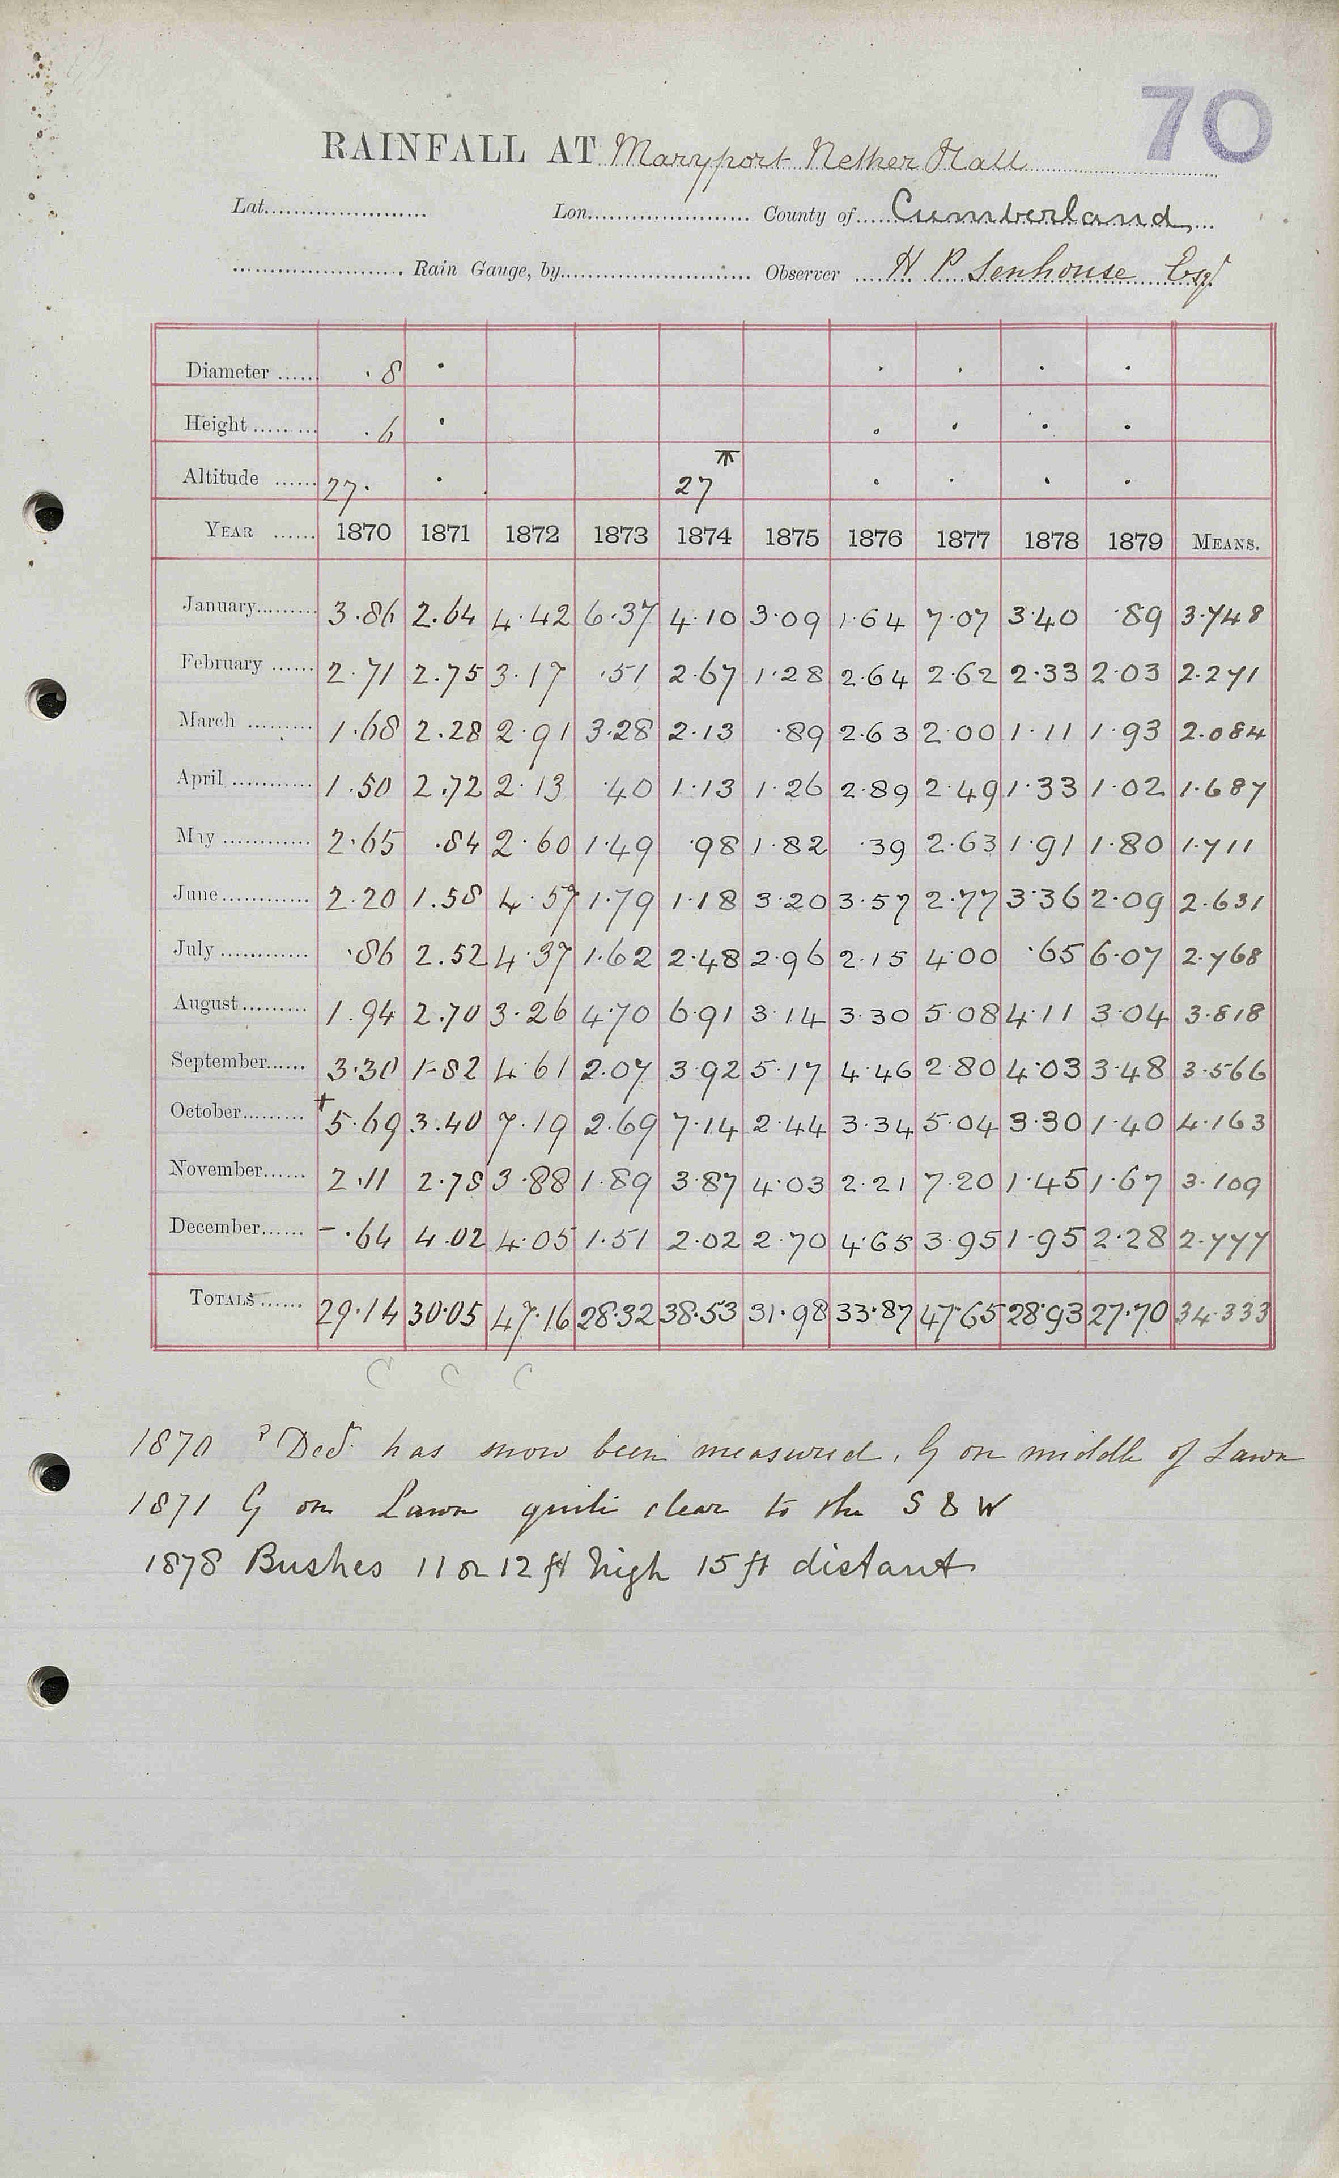 70
RAINFALL AT Maryport Nether Hall
Lat. Lon. County of Cumberland
Rain Gauge, by Observer H P Senhouse Esqr
Diameter .8
Height .6
Altitude 27. 27
YEAR 1870 1871 1872 1873 1874 1875 1876 1877 1878 1879 MEANS.
January 3.86 2.64 4.42 6.37 4.10 3.09 1.64 7.07 3.40 .89 3.748
February 2.71 2.75 3.17 .51 2.67 1.28 2.64 2.62 2.33 2.03 2.271
March 1.68 2.28 2.91 3.28 2.13 .89 2.63 2.00 1.11 1.93 2.084
April 1.50 2.72 2.13 .40 1.13 1.26 2.89 2.49 1.33 1.02 1.687
May 2.65 .84 2.60 1.49 .98 1.82 .39 2.63 1.91 1.80 1.711
June 2.20 1.58 4.57 1.79 1.18 3.20 3.57 2.77 3.36 2.09 2.631
July .86 2.52 4.37 1.62 2.48 2.96 2.15 4.00 .65 6.07 2.768
August 1.94 2.70 3.26 4.70 6.91 3.14 3.30 5.08 4.11 3.04 3.818
September 3.30 1.82 4.61 2.07 3.92 5.17 4.46 2.80 4.03 3.48 3.566
October +5.69 3.40 7.19 2.69 7.14 2.44 3.34 5.04 3.30 1.40 4.163
November 2.11 2.78 3.88 1.89 3.87 4.03 2.21 7.20 1.45 1.67 3.109
December -.64 4.02 4.05 1.51 2.02 2.70 4.65 3.95 1.95 2.28 2.777
TOTALS 29.14 30.05 47.16 28.32 38.53 31.98 33.87 47.65 28.93 27.70 34.333
C C C
1870 ? Decr. has snow been measured. G on middle of Lawn
1871 G on Lawn quite clear to the S & W
1878 Bushes 11 or 12 ft high 15 ft distant